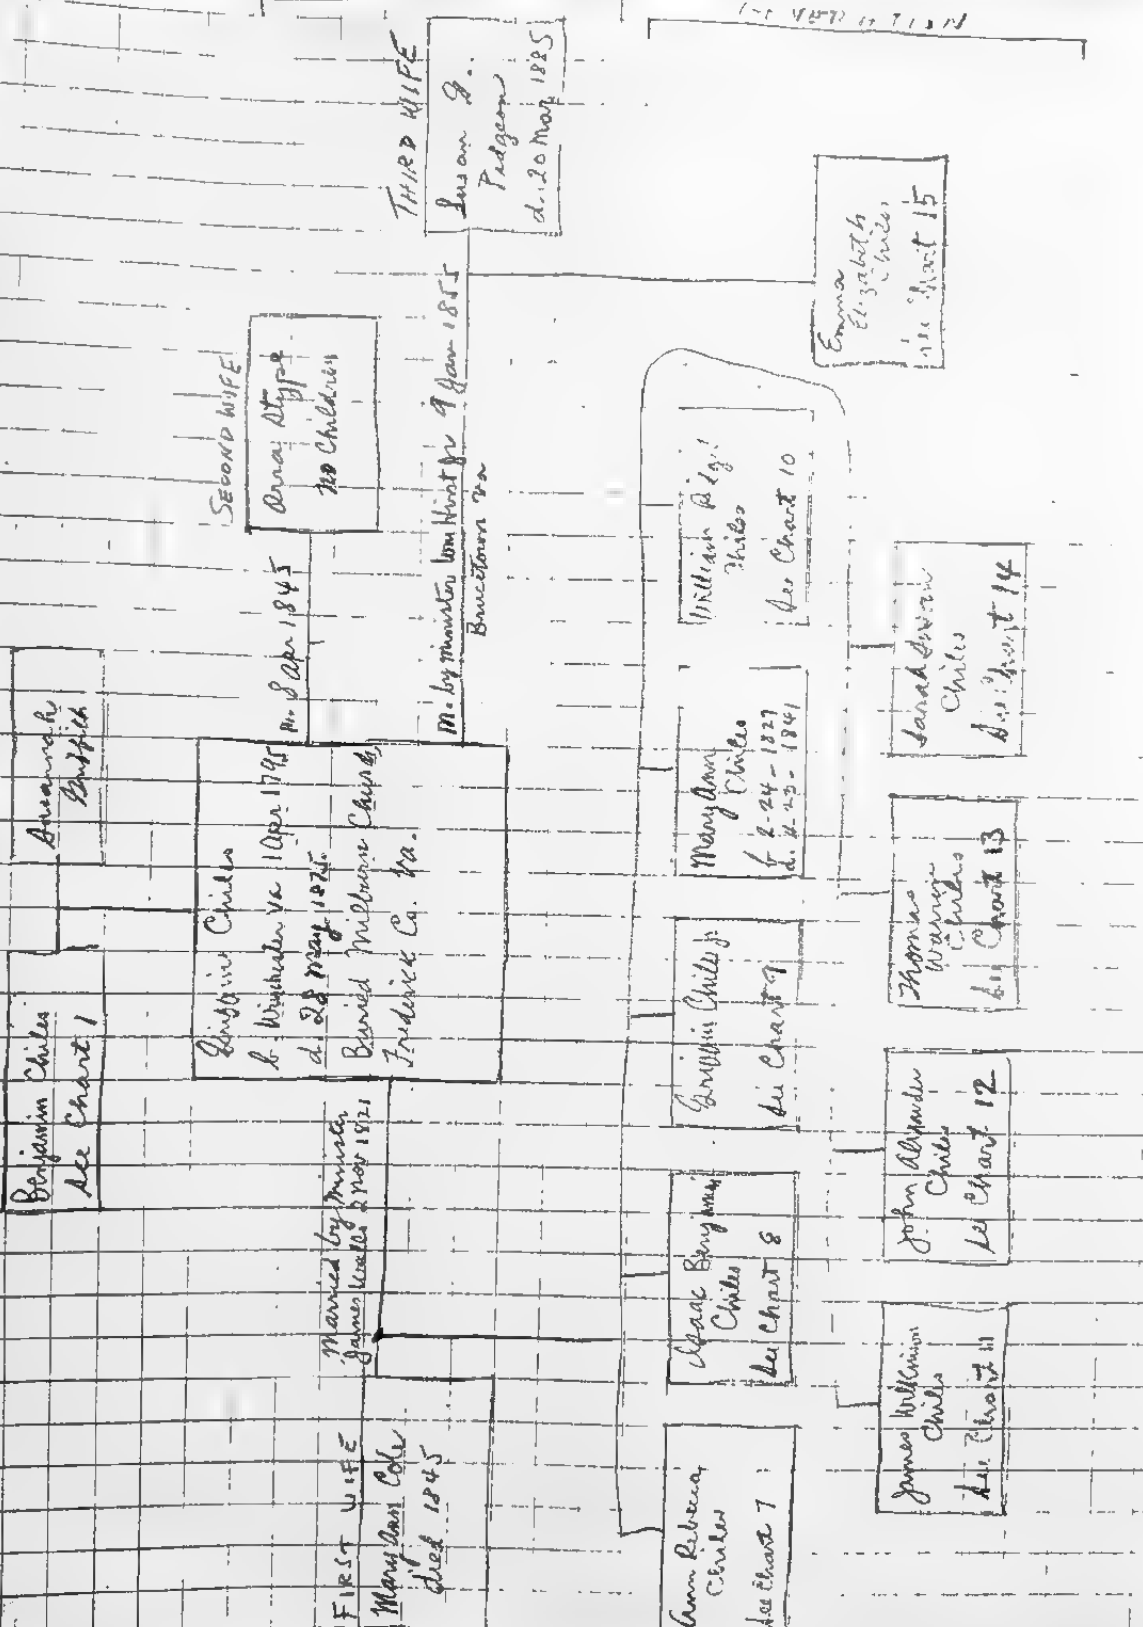 Benjamin Chiles
See Chart 1
Susannah
Griffith
Griffin Chiles
b. Winchester Va 1 Apr 1795
d. 28 May 1875
Buried Milburn Church,
Frederick Co. Va.
FIRST WIFE
Mary Ann Cole
died 1845
Married by Minister
James Walls 2 Nov 1821
SECOND WIFE
Anna Stype
no Children
m. 8 Apr 1845
THIRD WIFE
Susan G.
Pidgeon
d. 20 Mar 1885
m. by minister 9 Jan 1855
Brucetown Va
Ann Rebecca
Chiles
See Chart 7
Isaac Benjamin
Chiles
See Chart 8
Griffin Chiles Jr
See Chart 9
Mary Ann
Chiles
b 2-24-1827
d. 4-23-1841
William
Chiles
See Chart 10
James Wilkinson
Chiles
See Chart 11
John Alexander
Chiles
See Chart 12
Thomas
Chiles
See Chart 13
Sarah Susan
Chiles
See Chart 14
Emma
Elizabeth
Chiles
See Chart 15